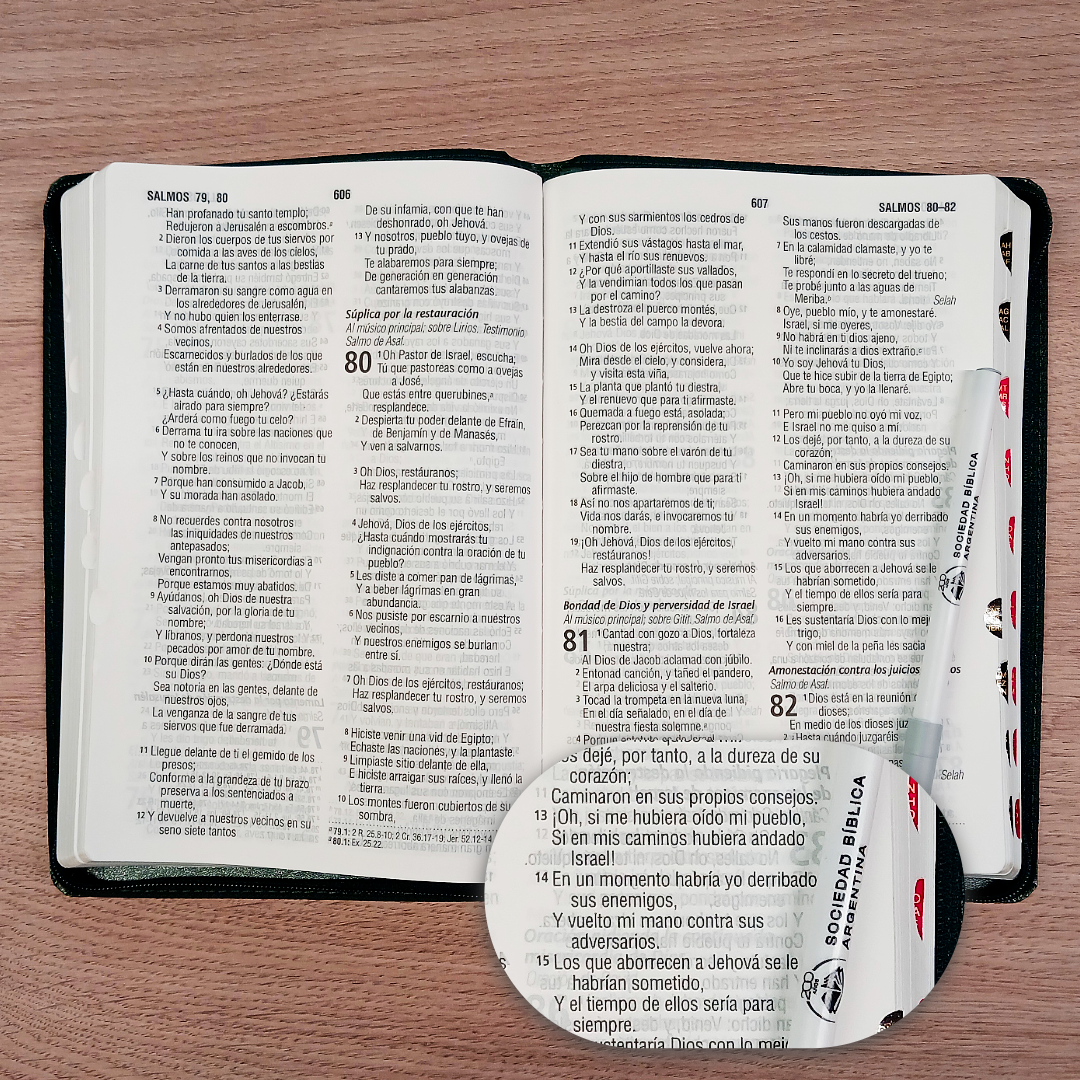 SALMOS 79, 80
606
Han profanado tu santo templo;
Redujeron a Jerusalén a escombros.ᵃ
2 Dieron los cuerpos de tus siervos por
comida a las aves de los cielos,
La carne de tus santos a las bestias
de la tierra.
3 Derramaron su sangre como agua en
los alrededores de Jerusalén,
Y no hubo quien los enterrase.
4 Somos afrentados de nuestros
vecinos,
Escarnecidos y burlados de los que
están en nuestros alrededores.
5 ¿Hasta cuándo, oh Jehová? ¿Estarás
airado para siempre?
¿Arderá como fuego tu celo?
6 Derrama tu ira sobre las naciones que
no te conocen,
Y sobre los reinos que no invocan tu
nombre.
7 Porque han consumido a Jacob,
Y su morada han asolado.
8 No recuerdes contra nosotros
las iniquidades de nuestros
antepasados;
Vengan pronto tus misericordias a
encontrarnos,
Porque estamos muy abatidos.
9 Ayúdanos, oh Dios de nuestra
salvación, por la gloria de tu
nombre;
Y líbranos, y perdona nuestros
pecados por amor de tu nombre.
10 Porque dirán las gentes: ¿Dónde está
su Dios?
Sea notoria en las gentes, delante de
nuestros ojos,
La venganza de la sangre de tus
siervos que fue derramada.
11 Llegue delante de ti el gemido de los
presos;
Conforme a la grandeza de tu brazo
preserva a los sentenciados a
muerte,
12 Y devuelve a nuestros vecinos en su
seno siete tantos
De su infamia, con que te han
deshonrado, oh Jehová.
13 Y nosotros, pueblo tuyo, y ovejas de
tu prado,
Te alabaremos para siempre;
De generación en generación
cantaremos tus alabanzas.
Súplica por la restauración
Al músico principal; sobre Lirios. Testimonio
Salmo de Asaf.
80 1 Oh Pastor de Israel, escucha;
Tú que pastoreas como a ovejas
a José,
Que estás entre querubines,ᵃ
resplandece.
2 Despierta tu poder delante de Efraín,
de Benjamín y de Manasés,
Y ven a salvarnos.
3 Oh Dios, restáuranos;
Haz resplandecer tu rostro, y seremos
salvos.
4 Jehová, Dios de los ejércitos,
¿Hasta cuándo mostrarás tu
indignación contra la oración de tu
pueblo?
5 Les diste a comer pan de lágrimas,
Y a beber lágrimas en gran
abundancia.
6 Nos pusiste por escarnio a nuestros
vecinos,
Y nuestros enemigos se burlan
entre sí.
7 Oh Dios de los ejércitos, restáuranos;
Haz resplandecer tu rostro, y seremos
salvos.
8 Hiciste venir una vid de Egipto;
Echaste las naciones, y la plantaste.
9 Limpiaste sitio delante de ella,
E hiciste arraigar sus raíces, y llenó la
tierra.
10 Los montes fueron cubiertos de su
sombra,
ᵃ 79.1: 2 R. 25.8-10; 2 Cr. 36.17-19; Jer. 52.12-14
ᵃ 80.1: Ex. 25.22.
607
SALMOS 80–82
Y con sus sarmientos los cedros de
Dios.
11 Extendió sus vástagos hasta el mar,
Y hasta el río sus renuevos.
12 ¿Por qué aportillaste sus vallados,
Y la vendimian todos los que pasan
por el camino?
13 La destroza el puerco montés,
Y la bestia del campo la devora.
14 Oh Dios de los ejércitos, vuelve ahora;
Mira desde el cielo, y considera,
y visita esta viña,
15 La planta que plantó tu diestra,
Y el renuevo que para ti afirmaste.
16 Quemada a fuego está, asolada;
Perezcan por la reprensión de tu
rostro.
17 Sea tu mano sobre el varón de tu
diestra,
Sobre el hijo de hombre que para ti
afirmaste.
18 Así no nos apartaremos de ti;
Vida nos darás, e invocaremos tu
nombre.
19 ¡Oh Jehová, Dios de los ejércitos,
restáuranos!
Haz resplandecer tu rostro, y seremos
salvos.
Bondad de Dios y perversidad de Israel
Al músico principal; sobre Gitit. Salmo de Asaf.
81 1 Cantad con gozo a Dios, fortaleza
nuestra;
Al Dios de Jacob aclamad con júbilo.
2 Entonad canción, y tañed el pandero,
El arpa deliciosa y el salterio.
3 Tocad la trompeta en la nueva luna,
En el día señalado, en el día de
nuestra fiesta solemne.ᵃ
4 Porque
Sus manos fueron descargadas de
los cestos.
7 En la calamidad clamaste, y yo te
libré;
Te respondí en lo secreto del trueno;
Te probé junto a las aguas de
Meriba.ᵇ Selah
8 Oye, pueblo mío, y te amonestaré.
Israel, si me oyeres,
9 No habrá en ti dios ajeno,
Ni te inclinarás a dios extraño.ᶜ
10 Yo soy Jehová tu Dios,
Que te hice subir de la tierra de Egipto;
Abre tu boca, y yo la llenaré.
11 Pero mi pueblo no oyó mi voz,
E Israel no me quiso a mí.
12 Los dejé, por tanto, a la dureza de su
corazón;
Caminaron en sus propios consejos.
13 ¡Oh, si me hubiera oído mi pueblo,
Si en mis caminos hubiera andado
Israel!
14 En un momento habría yo derribado
sus enemigos,
Y vuelto mi mano contra sus
adversarios.
15 Los que aborrecen a Jehová se le
habrían sometido,
Y el tiempo de ellos sería para
siempre.
16 Les sustentaría Dios con lo mej
trigo,
Y con miel de la peña les sacia
Amonestación contra los juicios os
Salmo de Asaf.
82 1 Dios está en la reunión
dioses;
En medio de los dioses juz
2 ¿Hasta cuándo juzgaréis
Selah
SOCIEDAD BÍBLICA
ARGENTINA
os dejé, por tanto, a la dureza de su
corazón;
Caminaron en sus propios consejos.
13 ¡Oh, si me hubiera oído mi pueblo,
Si en mis caminos hubiera andado
Israel!
14 En un momento habría yo derribado
sus enemigos,
Y vuelto mi mano contra sus
adversarios.
15 Los que aborrecen a Jehová se le
habrían sometido,
Y el tiempo de ellos sería para
siempre.
ustentaría Dios con lo mej
SOCIEDAD BÍBLICA
ARGENTINA
200
AÑOS